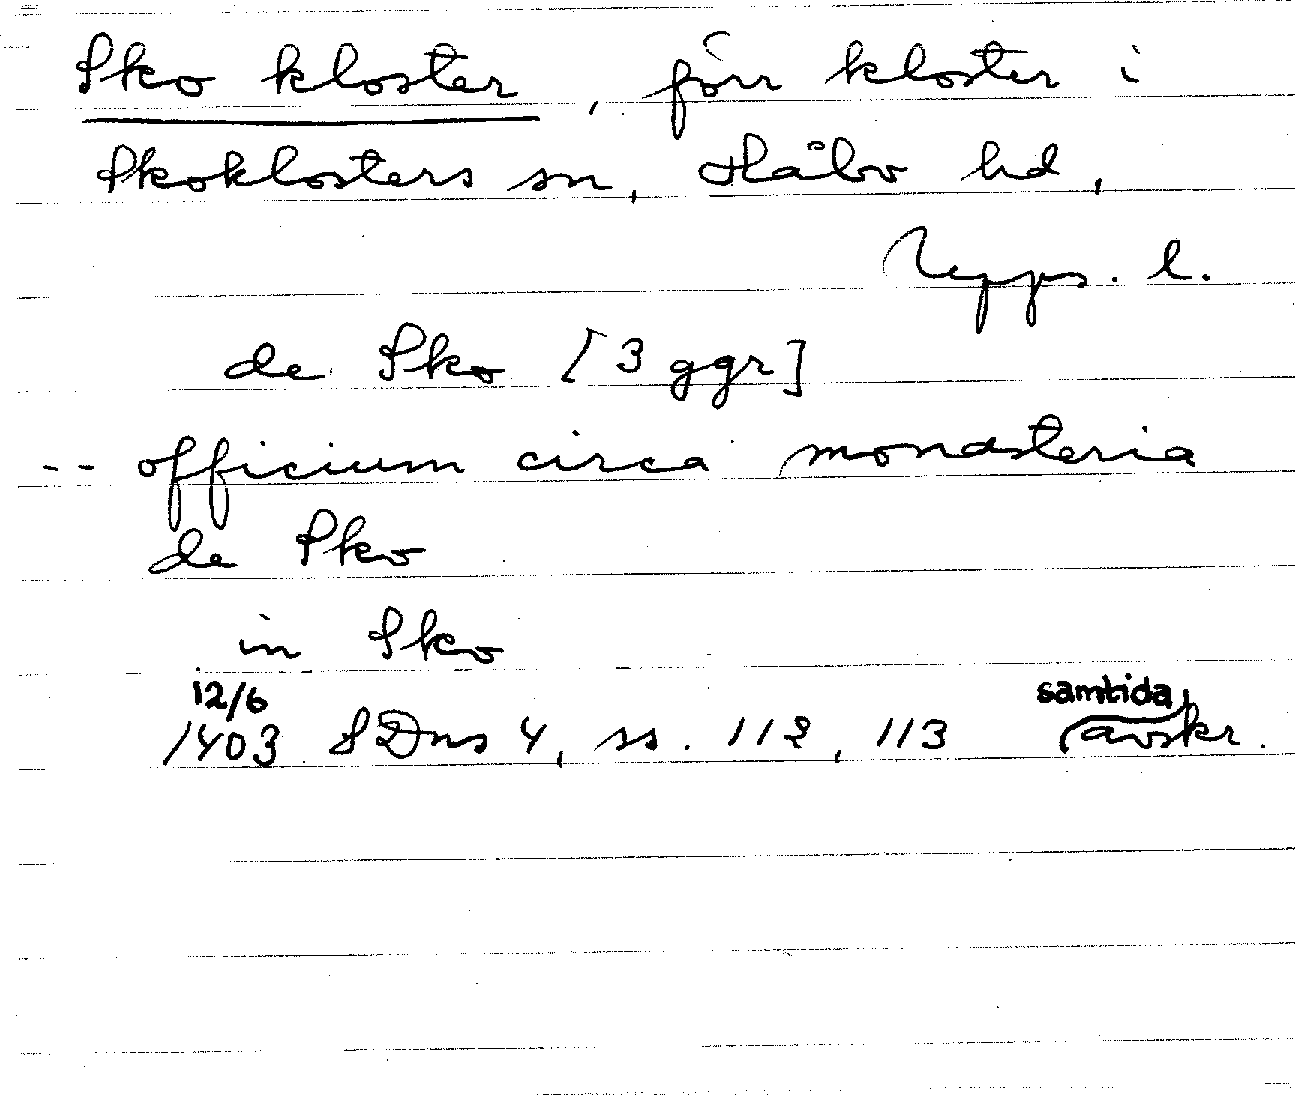 Sko kloster, förr kloster i
Skoklosters sn, Håbo hd,
Upps. l.
de Sko [3 ggr]
-- officium circa monasteria
de Sko
in Sko
12/6 samtida
1403 SDns 4, ss. 112, 113 avskr.